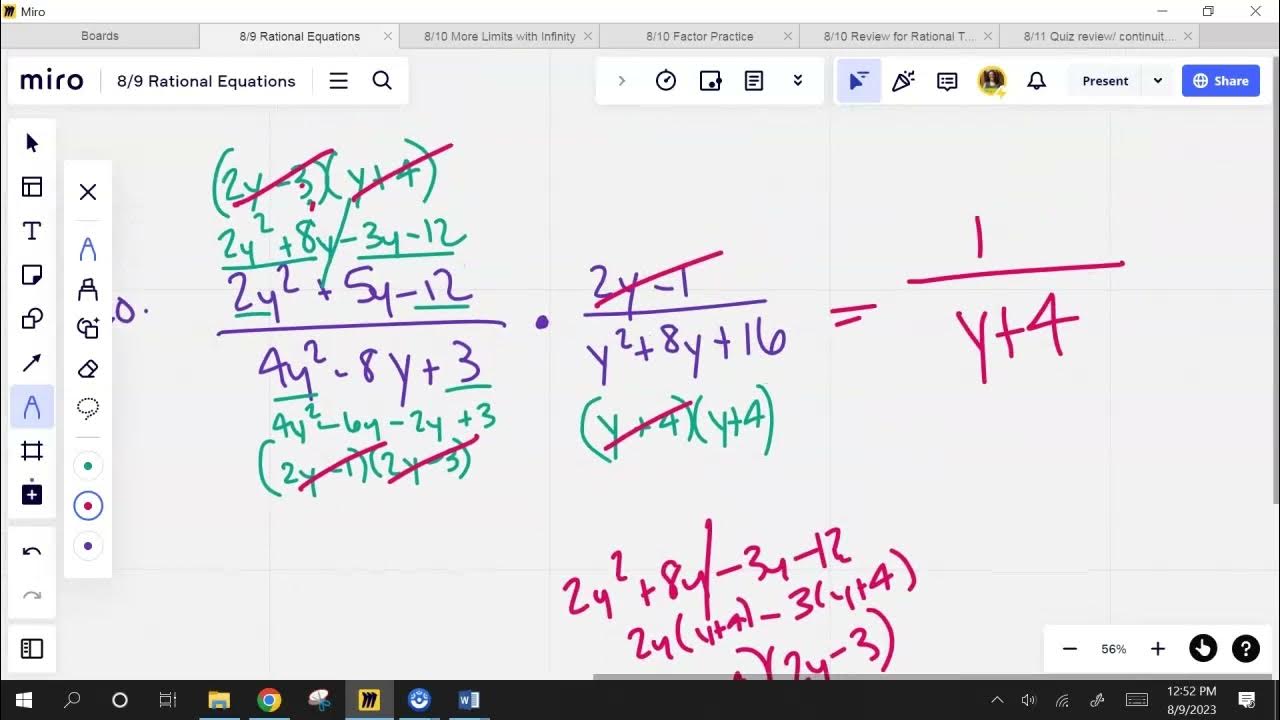 Miro
Boards
8/9 Rational Equations
8/10 More Limits with Infinity
8/10 Factor Practice
8/10 Review for Rational T...
8/11 Quiz review/ continuit...
miro
8/9 Rational Equations
Present
Share
(2y-3)(y+4)
2y² +8y-3y-12
2y² + 5y-12
4y² - 8y + 3
4y² - 6y - 2y + 3
(2y-1)(2y-3)
0.
•
2y-1
y²+8y+16
(y+4)(y+4)
=
1
y+4
2y² +8y-3y-12
2y(y+4)-3(y+4)
)(2y-3)
56%
12:52 PM
8/9/2023